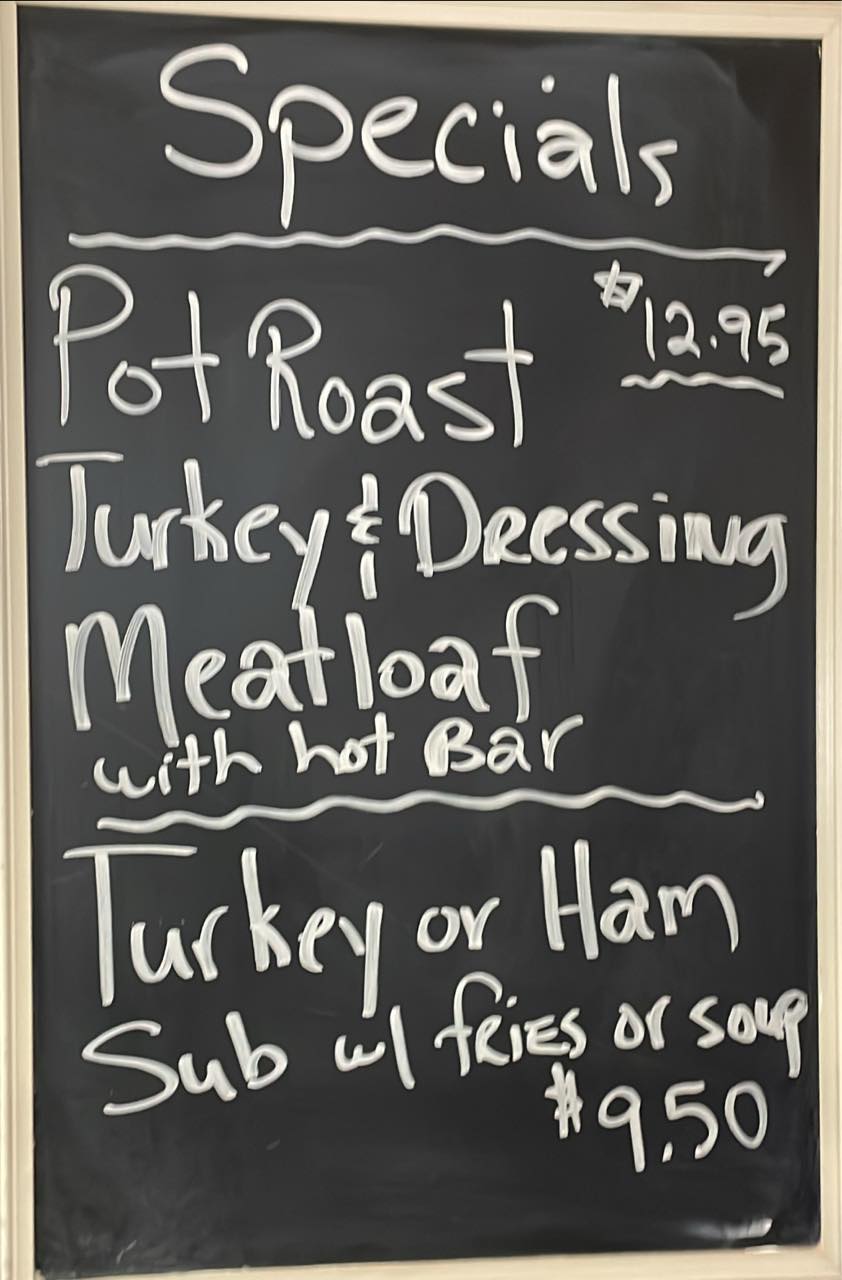 Specials
Pot Roast $12.95
Turkey & Dressing
Meatloaf
with hot Bar
Turkey or Ham
Sub w/ fries or soup
$9.50